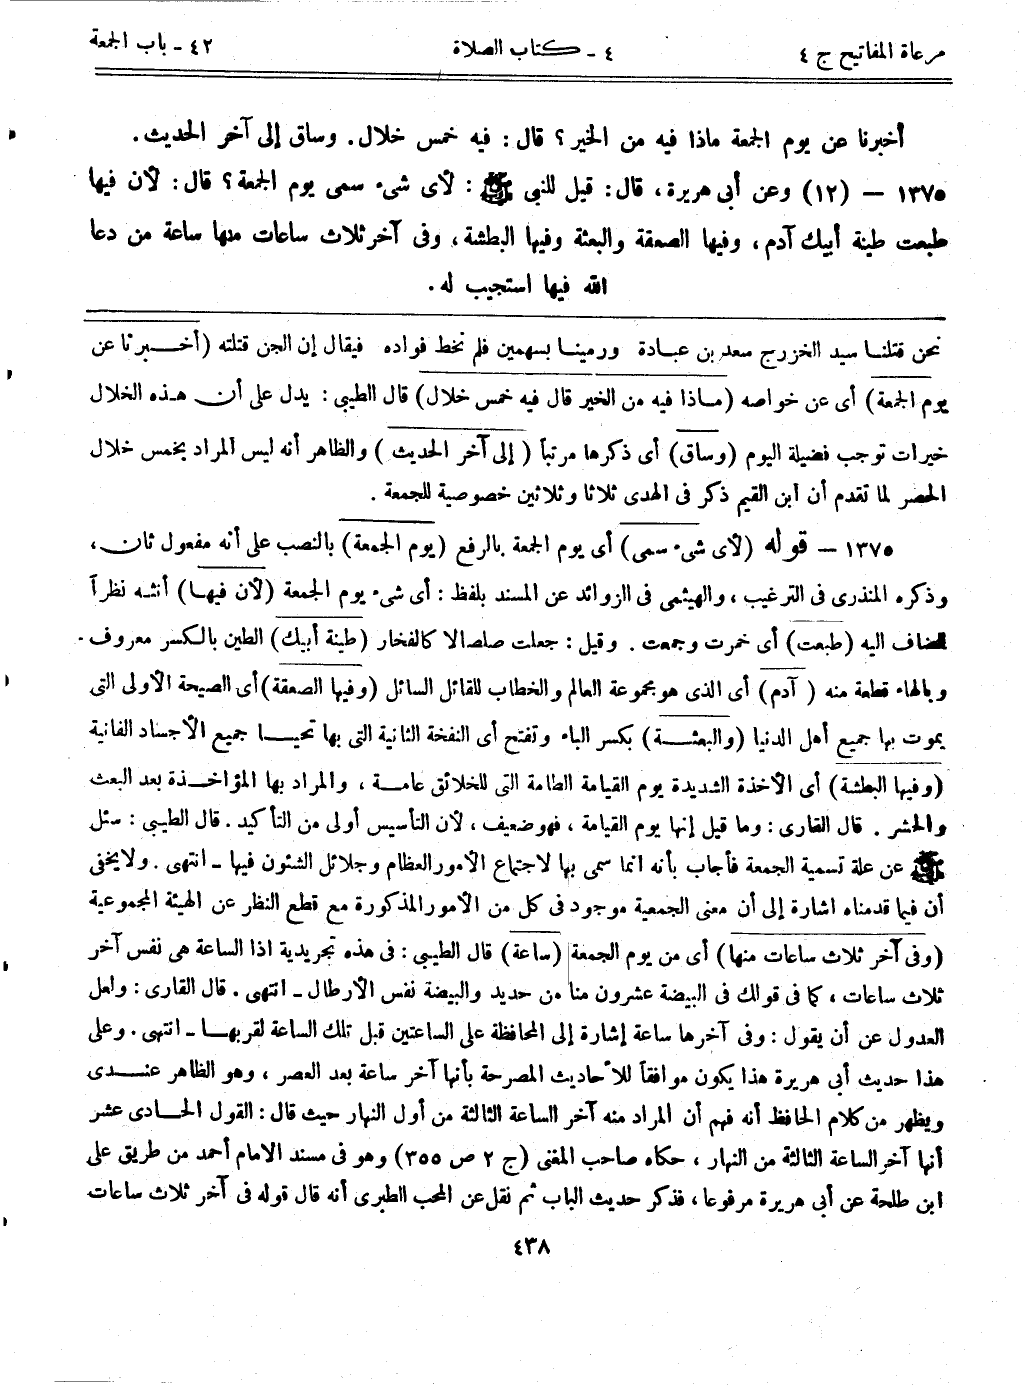 مرعاة المفاتيح ج ٤
٤ - كتاب الصلاة
٤٢ - باب الجمعة
أخبرنا عن يوم الجمعة ماذا فيه من الخير؟ قال: فيه خمس خلال. وساق إلى آخر الحديث.
١٣٧٥ – (١٢) وعن أبى هريرة، قال: قيل للنبى ﷺ: لأى شىء سمى يوم الجمعة؟ قال: لأن فيها
طبعت طينة أبيك آدم، وفيها الصعقة والبعثة وفيها البطشة، وفى آخر ثلاث ساعات منها ساعة من دعا
الله فيها استجيب له.
نحن قتلنا سيد الخزرج سعد بن عبادة ورمينا بسهمين فلم نخط فواده فيقال إن الجن قتلته (أخبرنا عن
يوم الجمعة) أى عن خواصه (ماذا فيه من الخير قال فيه خمس خلال) قال الطيبى: يدل على أن هذه الخلال
خيرات توجب فضيلة اليوم (وساق) أى ذكرها مرتباً (إلى آخر الحديث) والظاهر أنه ليس المراد بخمس خلال
الحصر لما تقدم أن ابن القيم ذكر فى الهدى ثلاثا وثلاثين خصوصية للجمعة.
١٣٧٥ – قوله (لأى شىء سمى) أى يوم الجمعة بالرفع (يوم الجمعة) بالنصب على أنه مفعول ثان،
وذكره المنذرى فى الترغيب، والهيثمى فى الزوائد عن المسند بلفظ: أى شىء يوم الجمعة (لأن فيها) أنثه نظراً
للمضاف اليه (طبعت) أى خمرت وجمعت. وقيل: جعلت صلصالا كالفخار (طينة أبيك) الطين بالكسر معروف.
وبالهاء قطعة منه (آدم) أى الذى هو مجموعة العالم والخطاب للقائل السائل (وفيها الصعقة) أى الصيحة الأولى التى
يموت بها جميع أهل الدنيا (والبعثة) بكسر الباء وتفتح أى النفخة الثانية التى بها تحيا جميع الأجساد الفانية
(وفيها البطشة) أى الأخذة الشديدة يوم القيامة الطامة التى للخلائق عامة، والمراد بها المؤاخذة بعد البعث
والحشر. قال القارى: وما قيل إنها يوم القيامة، فهو ضعيف، لأن التأسيس أولى من التأكيد. قال الطيبى: سئل
ﷺ عن علة تسمية الجمعة فأجاب بأنه انما سمى بها لاجتماع الأمور العظام وجلائل الشئون فيها - انتهى. ولا يخفى
أن فيما قدمناه اشارة إلى أن معنى الجمعية موجود فى كل من الأمور المذكورة مع قطع النظر عن الهيئة المجموعية
(وفى آخر ثلاث ساعات منها) أى من يوم الجمعة (ساعة) قال الطيبى: فى هذه تجريدية اذا الساعة هى نفس آخر
ثلاث ساعات، كما فى قولك فى البيضة عشرون منا من حديد والبيضة نفس الأرطال - انتهى. قال القارى: ولعل
العدول عن أن يقول: وفى آخرها ساعة إشارة إلى المحافظة على الساعتين قبل تلك الساعة لقربها - انتهى. وعلى
هذا حديث أبى هريرة هذا يكون موافقاً للأحاديث المصرحة بأنها آخر ساعة بعد العصر، وهو الظاهر عندى
ويظهر من كلام الحافظ أنه فهم أن المراد منه آخر الساعة الثالثة من أول النهار حيث قال: القول الحادى عشر
أنها آخر الساعة الثالثة من النهار، حكاه صاحب المغنى (ج ٢ ص ٣٥٥) وهو فى مسند الامام أحمد من طريق على
ابن طلحة عن أبى هريرة مرفوعا، فذكر حديث الباب ثم نقل عن المحب الطبرى أنه قال قوله فى آخر ثلاث ساعات
٤٣٨